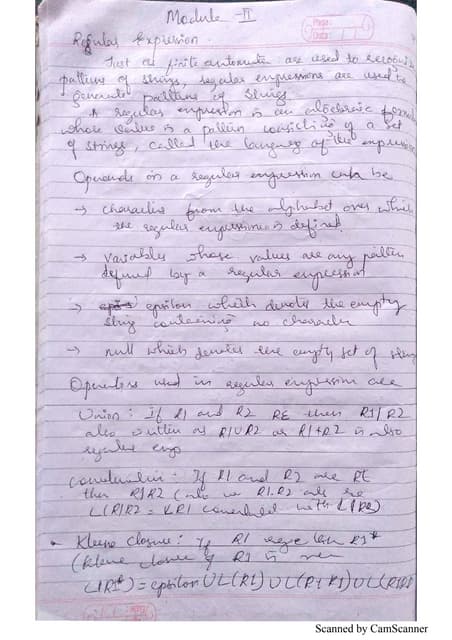 Module - II
Page:
Date:
Regular Expression
Just as finite automata are used to recognize
pattern of strings, regular expressions are used to
generate pattern of strings
A regular expression is an algebraic formula
whose value is a pattern consisting of a set
of strings, called the language of the expression
Operands in a regular expression can be
→ characters from the alphabet over which
the regular expression is defined
→ variables whose values are any pattern
defined by a regular expression
→ epsilon which denote the empty
string containing no character
→ null which denotes the empty set of string
Operators used in regular expression are
Union: If R1 and R2 RE then R1/R2
also written as R1UR2 or R1+R2 is also
regular exp
concatenation: If R1 and R2 are RE
then R1R2 (also R1.R2
L(R1R2 = L(R1 with L(R2)
Kleene closure: If R1 R1*
(Kleene closure of R1 is
L(R1*) = epsilon U L(R1) U L(R1R1) U L(R1R1R1
Scanned by CamScanner